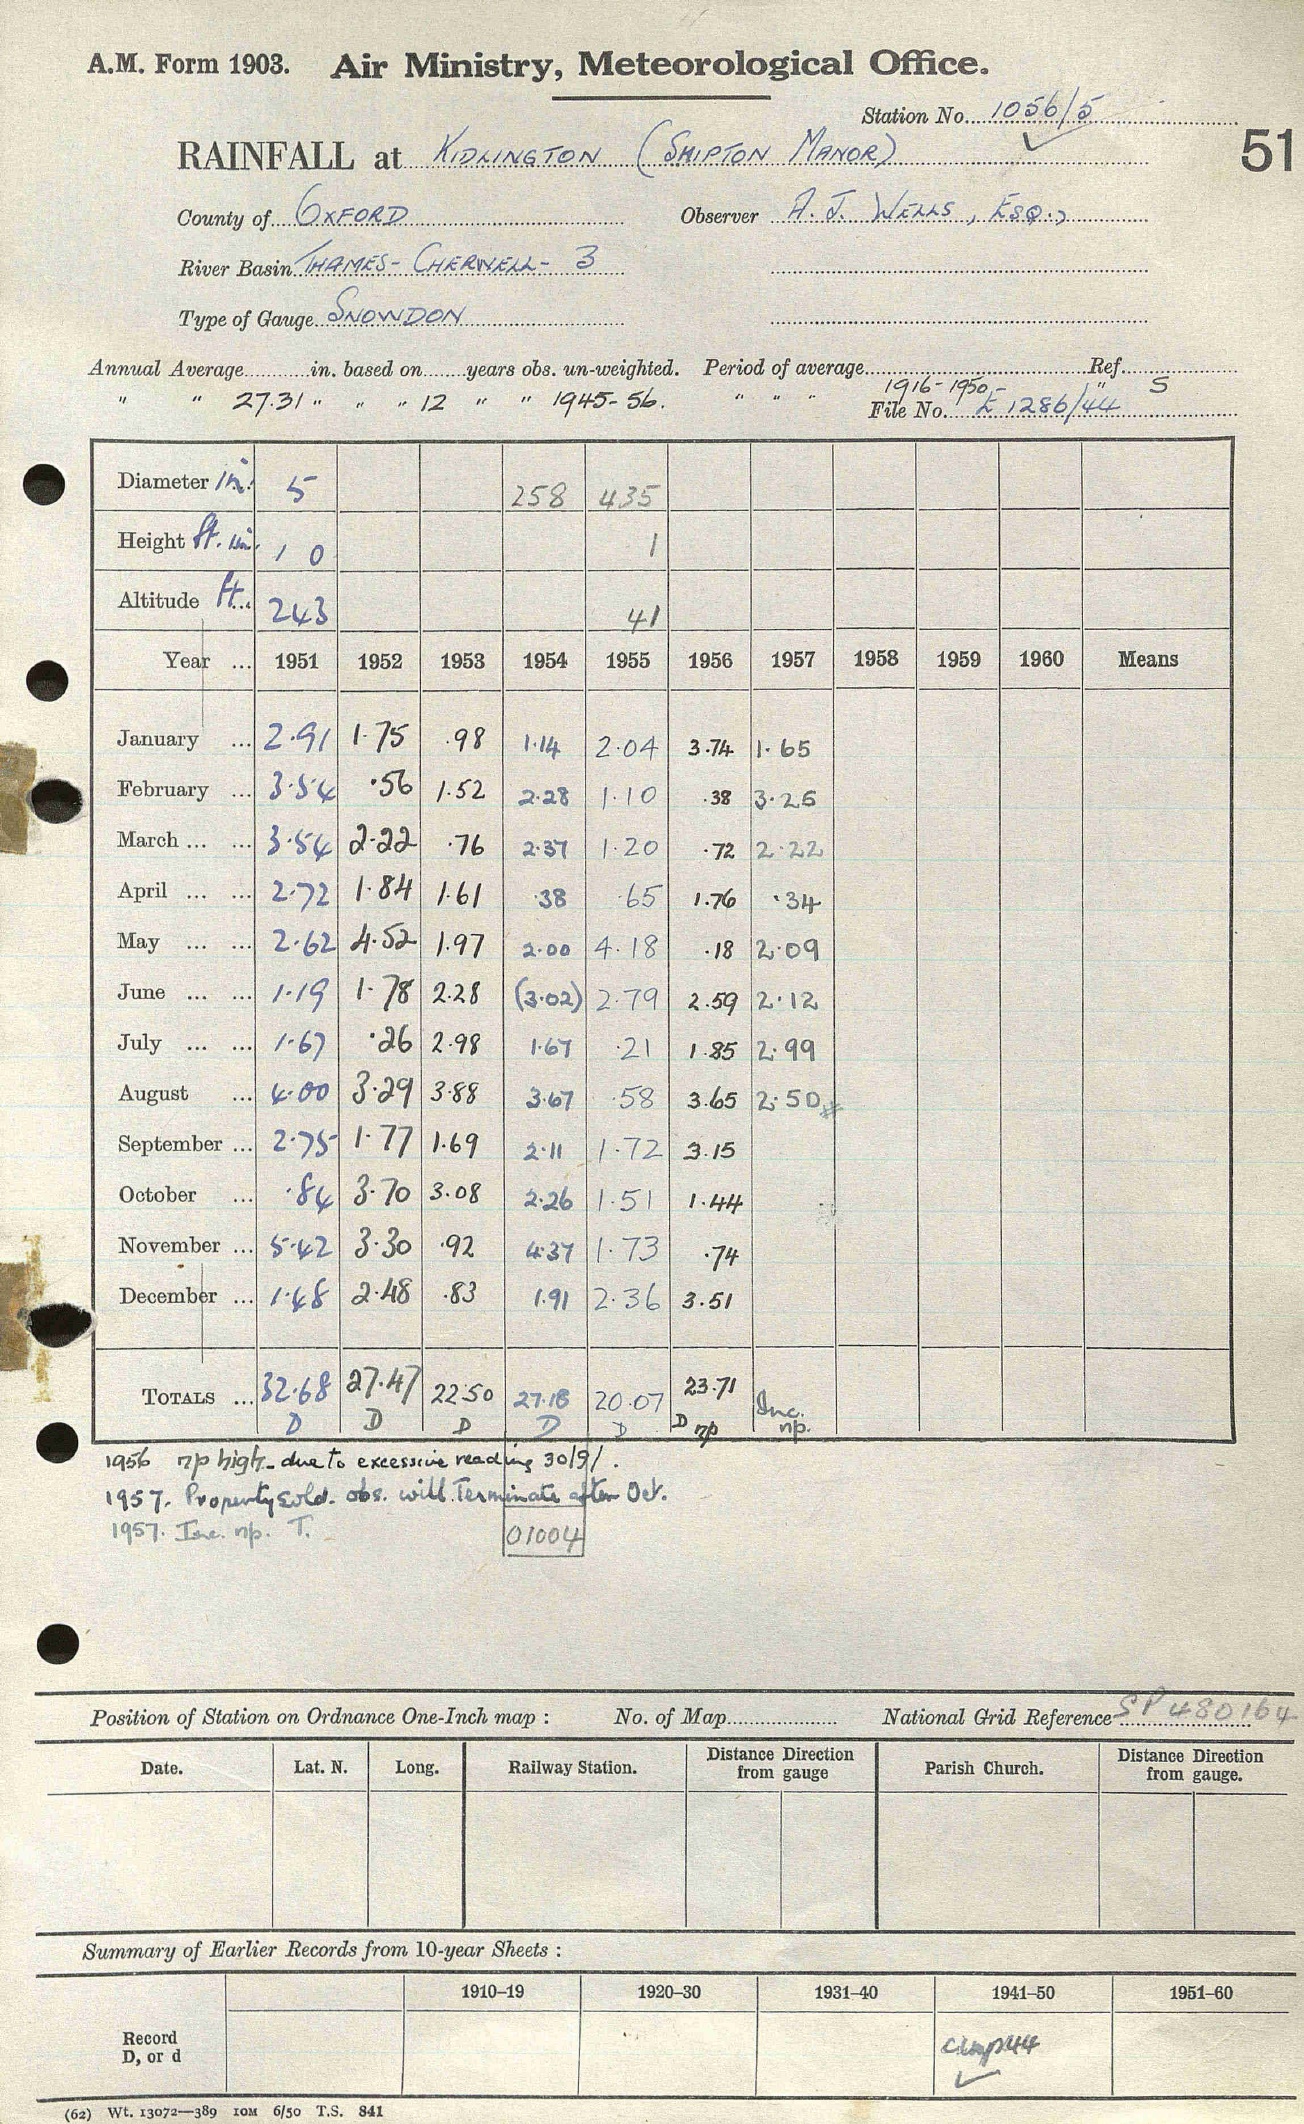 A.M. Form 1903. Air Ministry, Meteorological Office.
Station No. 1056/5
51
RAINFALL at KIDLINGTON (SHIPTON MANOR)
County of OXFORD Observer A. J. WELLS, ESQ.,
River Basin THAMES - CHERWELL - 3
Type of Gauge SNOWDON
Annual Average in. based on years obs. un-weighted. Period of average Ref.
" " 27.31 " " " 12 " " 1945-56. " " " 1916-1950 " S
File No. E 1286/44
Diameter in. 5 258 435
Height ft. in. 1 0 1
Altitude ft. 243 41
Year ... 1951 1952 1953 1954 1955 1956 1957 1958 1959 1960 Means
January ... 2.91 1.75 .98 1.14 2.04 3.74 1.65
February ... 3.54 .56 1.52 2.28 1.10 .38 3.25
March ... ... 3.54 2.22 .76 2.37 1.20 .72 2.22
April ... ... 2.72 1.84 1.61 .38 .65 1.76 .34
May ... ... 2.62 4.52 1.97 2.00 4.18 .18 2.09
June ... ... 1.19 1.78 2.28 (3.02) 2.79 2.59 2.12
July ... ... 1.67 .26 2.98 1.67 .21 1.85 2.99
August ... 4.00 3.29 3.88 3.67 .58 3.65 2.50
September ... 2.75 1.77 1.69 2.11 1.72 3.15
October ... .84 3.70 3.08 2.26 1.51 1.44
November ... 5.42 3.30 .92 4.37 1.73 .74
December ... 1.48 2.48 .83 1.91 2.36 3.51
TOTALS ... 32.68 27.47 22.50 27.18 20.07 23.71 Inc.
D D D D D D np np.
1956 np high - due to excessive reading 30/9/.
1957. Property sold. obs. will Terminate after Oct.
1957. Inc. np. T.
01004
Position of Station on Ordnance One-Inch map : No. of Map National Grid Reference SP 480164
Date. Lat. N. Long. Railway Station. Distance Direction from gauge Parish Church. Distance Direction from gauge.
Summary of Earlier Records from 10-year Sheets :
1910–19 1920–30 1931–40 1941–50 1951–60
Record
D, or d
(62) Wt. 13072—389 10M 6/50 T.S. 841